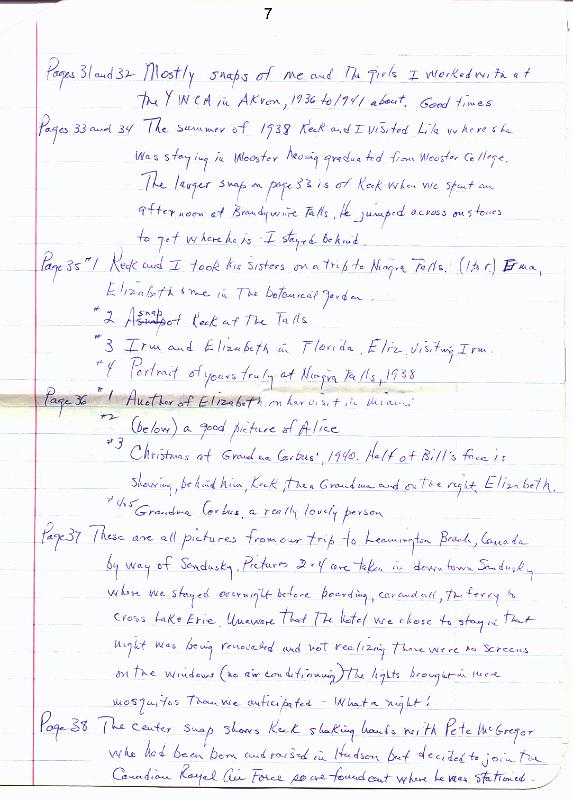 7
Pages 31 and 32 Mostly snaps of me and The girls I worked with at
the YWCA in Akron, 1936 to 1941 about. Good times
Pages 33 and 34 The summer of 1938 Keck and I visited Lila where she
was staying in Wooster having graduated from Wooster College.
The larger snap on page 33 is of Keck when we spent an
afternoon at Brandywine Falls. He jumped across on stones
to get where he is. I stayed behind.
Page 35 #1 Keck and I took his sisters on a trip to Niagra Falls. (l to r.) Irma,
Elizabeth & me in The botanical garden.
#2 A snap of Keck at The Falls
#3 Irm and Elizabeth in Florida. Eliz. visiting Irm.
#4 Portrait of yours truly at Niagra Falls, 1938
Page 36 #1 Another of Elizabeth on her visit in Miami
#2 (below) a good picture of Alice
#3 Christmas at Grandma Corbus', 1940. Half of Bill's face is
showing, behind him, Keck, then Grandma and on the right, Elizabeth.
#4&5 Grandma Corbus, a really lovely person
Page 37 These are all pictures from our trip to Leamington Beach, Canada
by way of Sandusky. Pictures 2+4 are taken in downtown Sandusky
where we stayed overnight before boarding, car and all, the ferry to
cross Lake Erie. Unaware That The hotel we chose to stay in that
night was being renovated and not realizing there were no screens
on the windows (no air conditioning) The lights brought in more
mosquitos Than we anticipated - What a night!
Page 38 The center snap shows Keck shaking hands with Pete McGregor
who had been born and raised in Hudson but decided to join the
Canadian Royal Air Force so we found out where he was stationed.